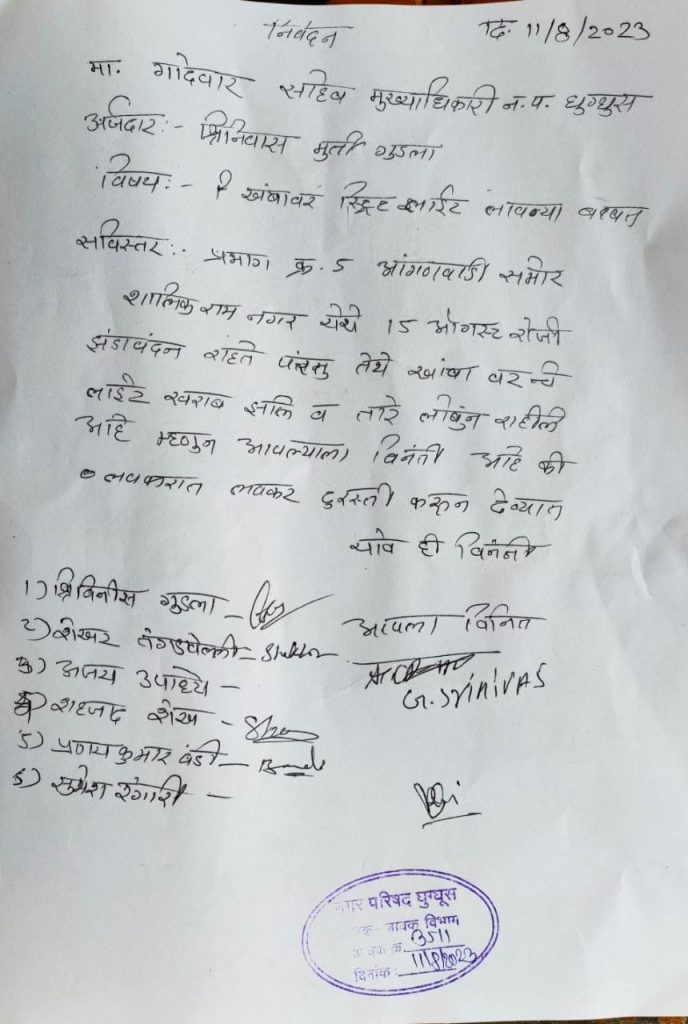 निवेदन दि. 11/8/2023
मा. गादेवार साहेब मुख्याधिकारी न.प. घुग्घुस
अर्जदार :- श्रिनिवास मुर्ती गुडला
विषय :- खंबावर स्ट्रिट लाईट लावन्या बाबत
सविस्तर :. प्रभाग क्र. 5 आंगणवाडी समोर
शालिकराम नगर येथे 15 ऑगस्ट रोजी
झंडावंदन राहते परंतु तेथे खांबा वरचे
लाईट खराब झालि व तारे लोंबुन राहीली
आहे म्हणुन आपल्याला विनंती आहे की
लवकरात लवकर दुरस्ती करून देण्यात
यावे ही विनंनी
1) श्रिविनीस गुडला -
2) शेखर तंगडपेल्ली -
3) अजय उपाध्ये -
शहजाद शेख -
5) प्रणयकुमार बंडी -
6) सुमेश रंगारी -
आपला विनित
G. SRINIVAS
नगर परिषद घुग्घूस
जावक विभाग
आवक क्र. 3511
दिनांक : 11/8/2023